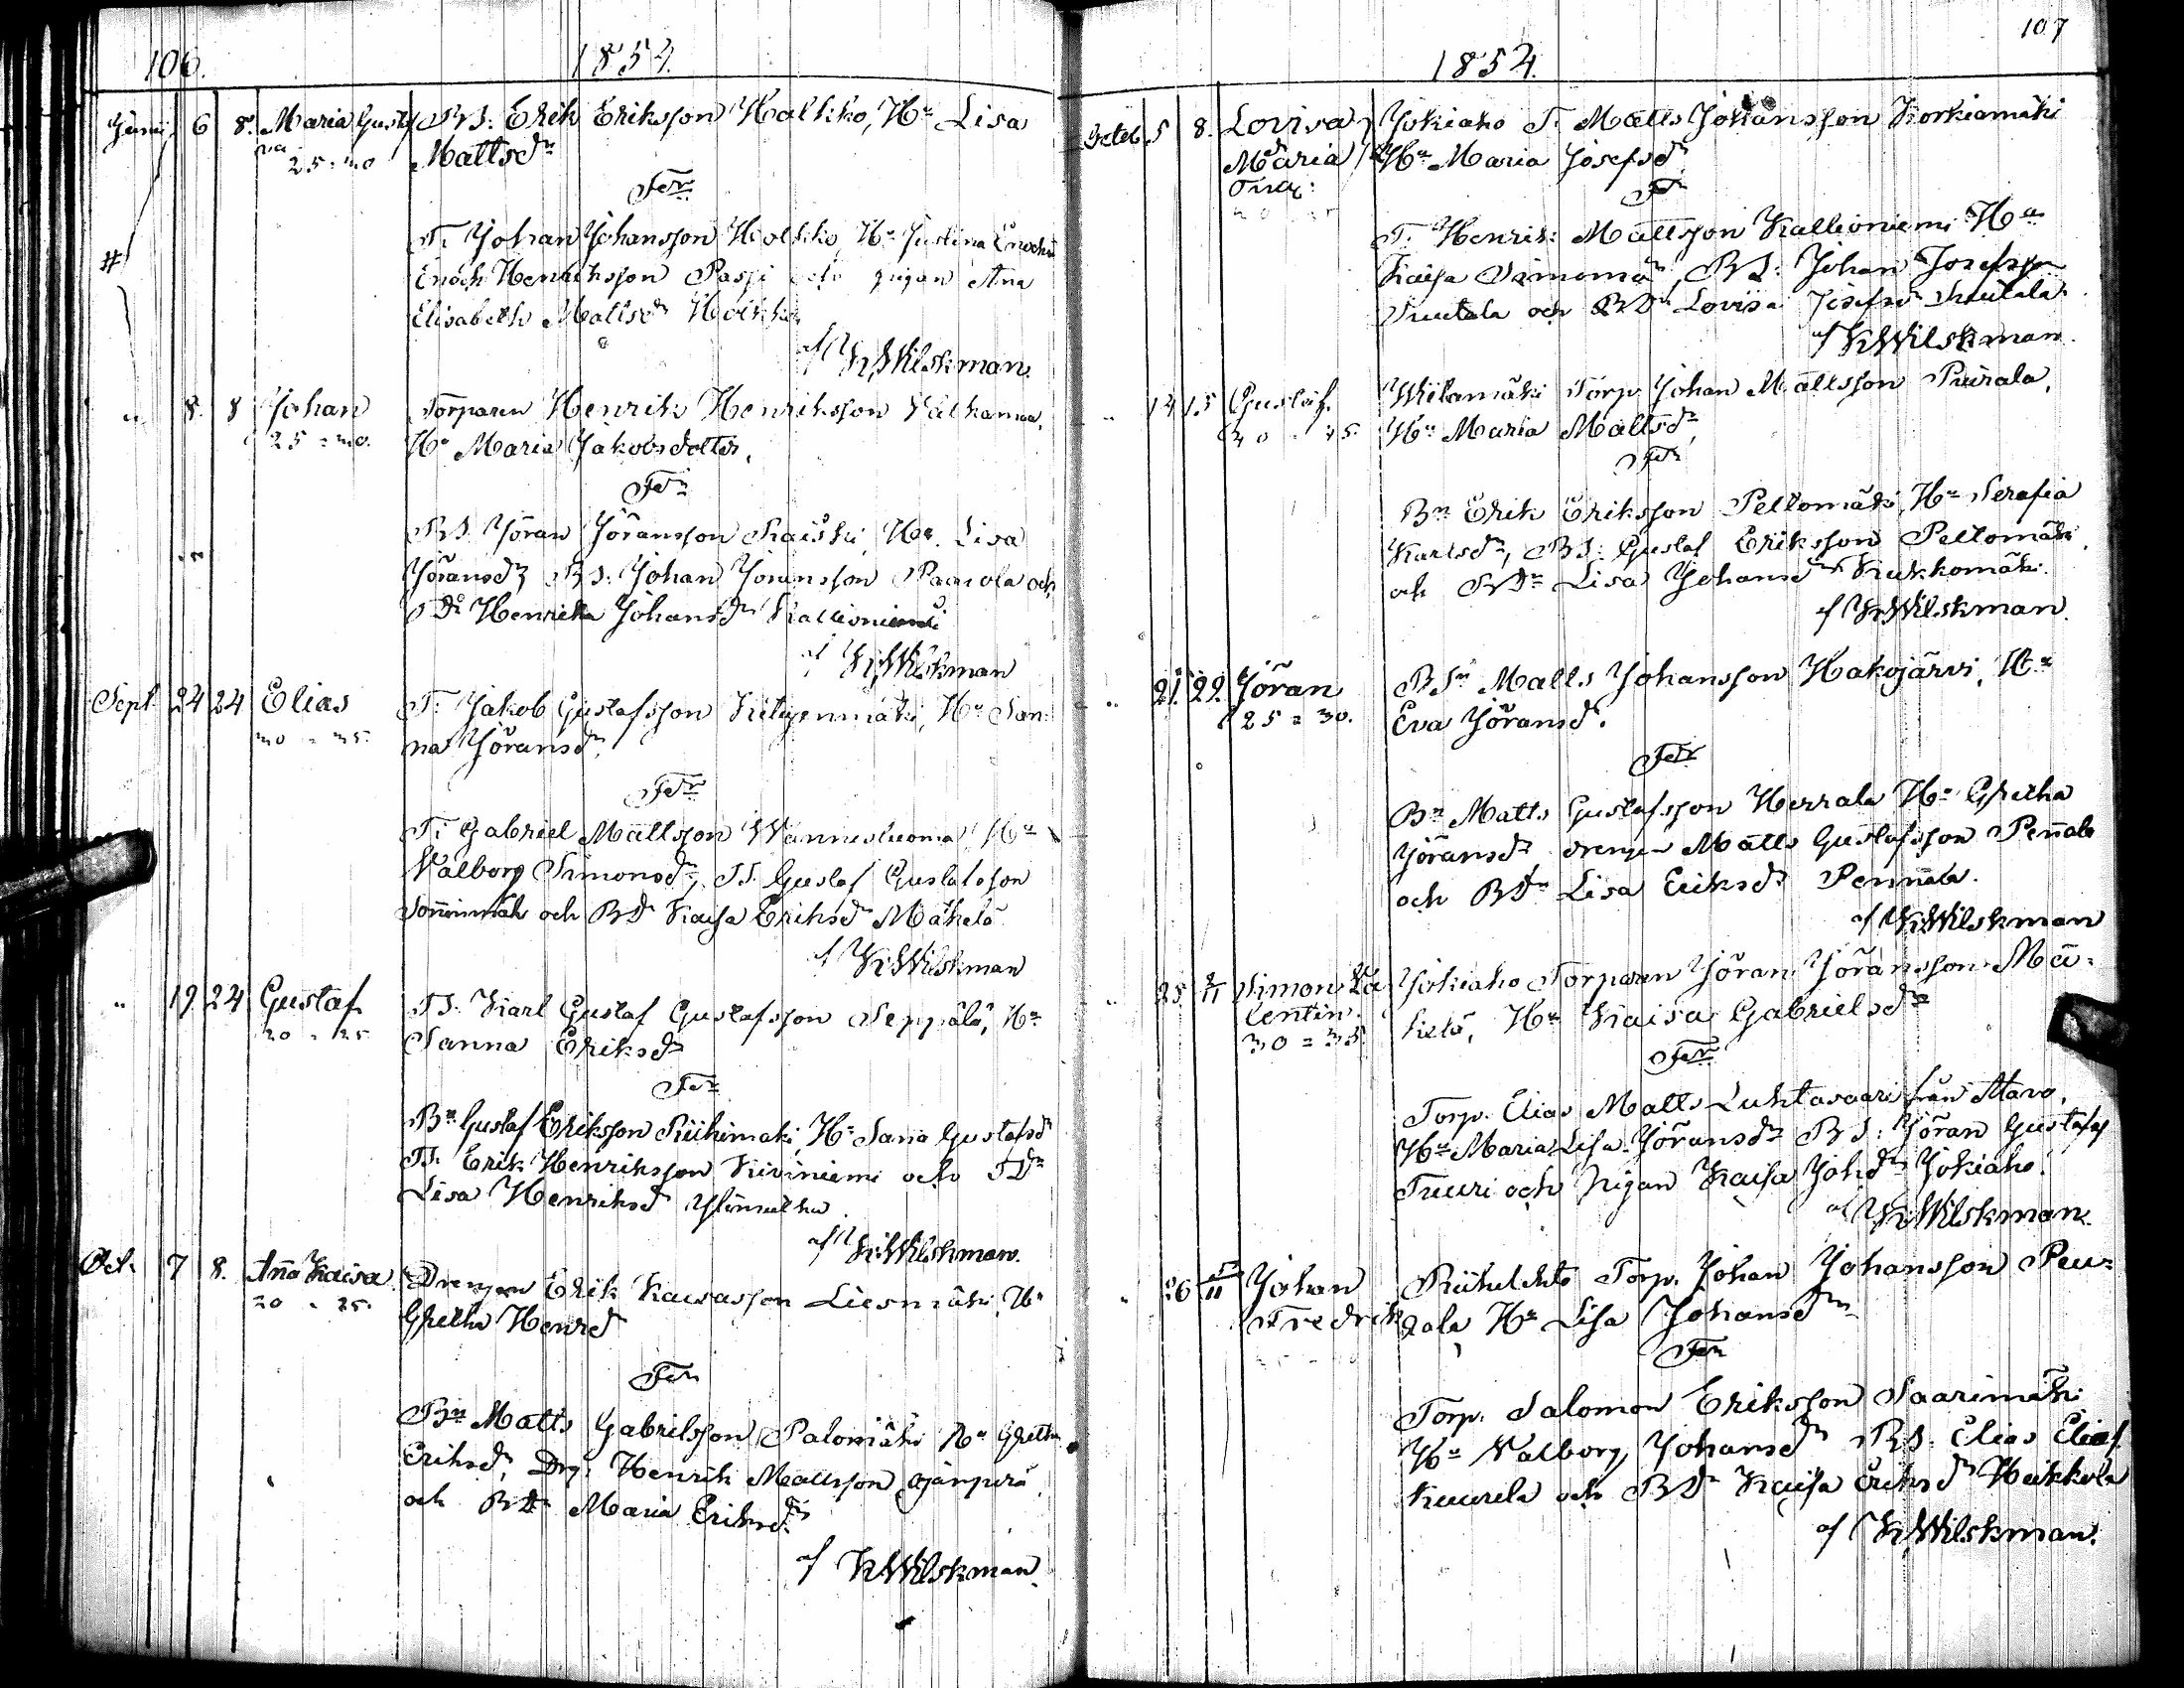 106.
1854.
Junii 6 8. Maria Gusta BS: Erik Eriksson Holkko, Hu Lisa
va
25=30 Mattsdr
Fdr
T. Johan Johansson Holkko Hu Justina Enochs
Enoch Henriksson Passi och pigan Ana
Elisabeth Mattsdr Holkko
#
af KWilskman.
" 8. 8 Johan Torparen Henrik Henriksson
25=30. Hu Maria Jakobsdotter.
Fdr
BS Jöran Jöransson Raiski Hu. Lisa
Jöransdr, BS: Johan Jöransson och
TDr Henrika Johansdr Kallioniemi
af KWilskman
Sept 24 24 Elias T. Jakob Gustafsson Hu San:
30=35. na Jöransdr
Fdr
T: Gabriel Mattsson Wannesluoma Hu
Walborg Simonsdr, TS. Gustaf Gustafsson
och BDr Kaisa Eriksdr Mäkelä
af KWilskman
" 19 24 Gustaf TS. Karl Gustaf Gustafsson Seppälä, Hu
Sanna Eriksdr
Fdr
Bn Gustaf Eriksson Riihimäki, Hu Sana Gustafsdr
TS. Erik Henriksson Kiviniemi och TDr
Lisa Henriksdr
af KWilskman.
Oct. 7 8. Ana Kaisa Drengen Erik Liesmäki, Hu
20=25. Gretha Henrdr
Fdr
Bn Matts Gabrielsson Palomäki Hu Gretha
Eriksdr, Drg: Henrik Mattsson Ojanperä
och BDr Maria Eriksdr
af KWilskman.
107
1854.
Octob. 5 8. Lovisa Jokiaho T. Matts Johansson Korkiamäki
Maria Hu Maria Josefsdr
Fdr
T. Henrik Mattsson Kallioniemi Hu
Kaisa Simonsdr, BS: Johan Josefsson
och BDr Lovisa Josefsdr
af KWilskman.
" 14 15 Gustaf. Wiitamäki Torp. Johan Mattsson Puirala,
Hu Maria Mattsdr
Fdr
Bn Erik Eriksson Peltomäki, Hu Serafia
Karlsdr, BS: Gustaf Eriksson Peltomäki
och BDr Lisa Johansdr Kukkomäki.
af KWilskman.
" 21. 29. Jöran BSn Matts Johansson Hakojärvi, Hu
25=30. Eva Jöransdr.
Fdr
Bn Matts Gustafsson Herrala Hu Gretha
Jöransdr, drengen Matts Gustafsson Penala
och BDr Lisa Eriksdr Pennala.
af KWilskman
" 25 Simon Va Jokiaho Torparen Jöran Jöransson Mä-
lentin. kelä, Hu Kaisa Gabrielsdr
30=35.
Fdr
Torp. Elias Matts Luhtasaari från Alavo,
Hu Maria Lisa Jöransdr BS: Jöran Gustafs
Tuuri och Pigan Kaisa Johdr Jokiaho.
af KWilskman.
" 26 Johan Torp. Johan Johansson Peu-
Fredrik rala Hu Lisa Johansdr
Fdr
Torp. Salomon Eriksson Saarimäki
Hu Valborg Johansdr BS. Elias Eliass
Kuurela och BDr Kaisa Eriksdr Heikkola
af KWilskman.